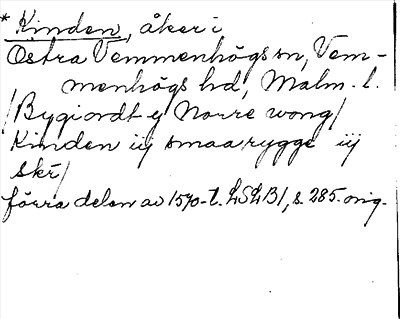 * Kinden, åker i
Östra Vemmenhögs sn, Vem-
menhögs hd, Malm. l.
/Bygiordt y Norre wong/
Kinden iij smaa rygge iij
skr/
förra delen av 1570-t. LSLB1, s. 285. orig.